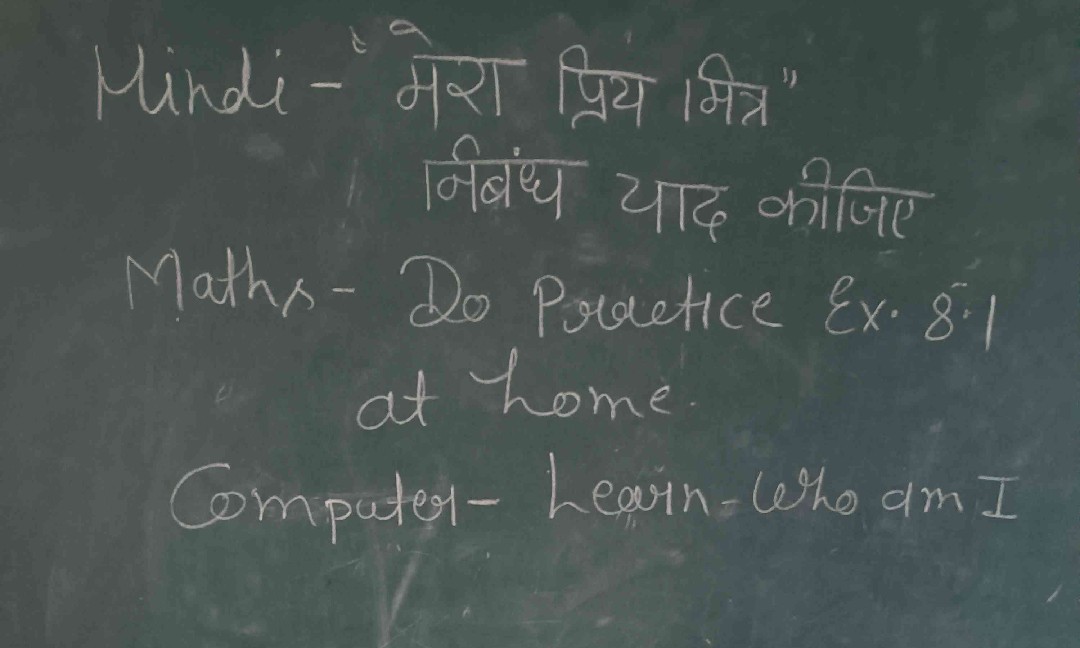 Hindi - "मेरा प्रिय मित्र"
निबंध याद कीजिए
Maths - Do Practice Ex. 8.1
at home.
Computer - Learn - Who am I